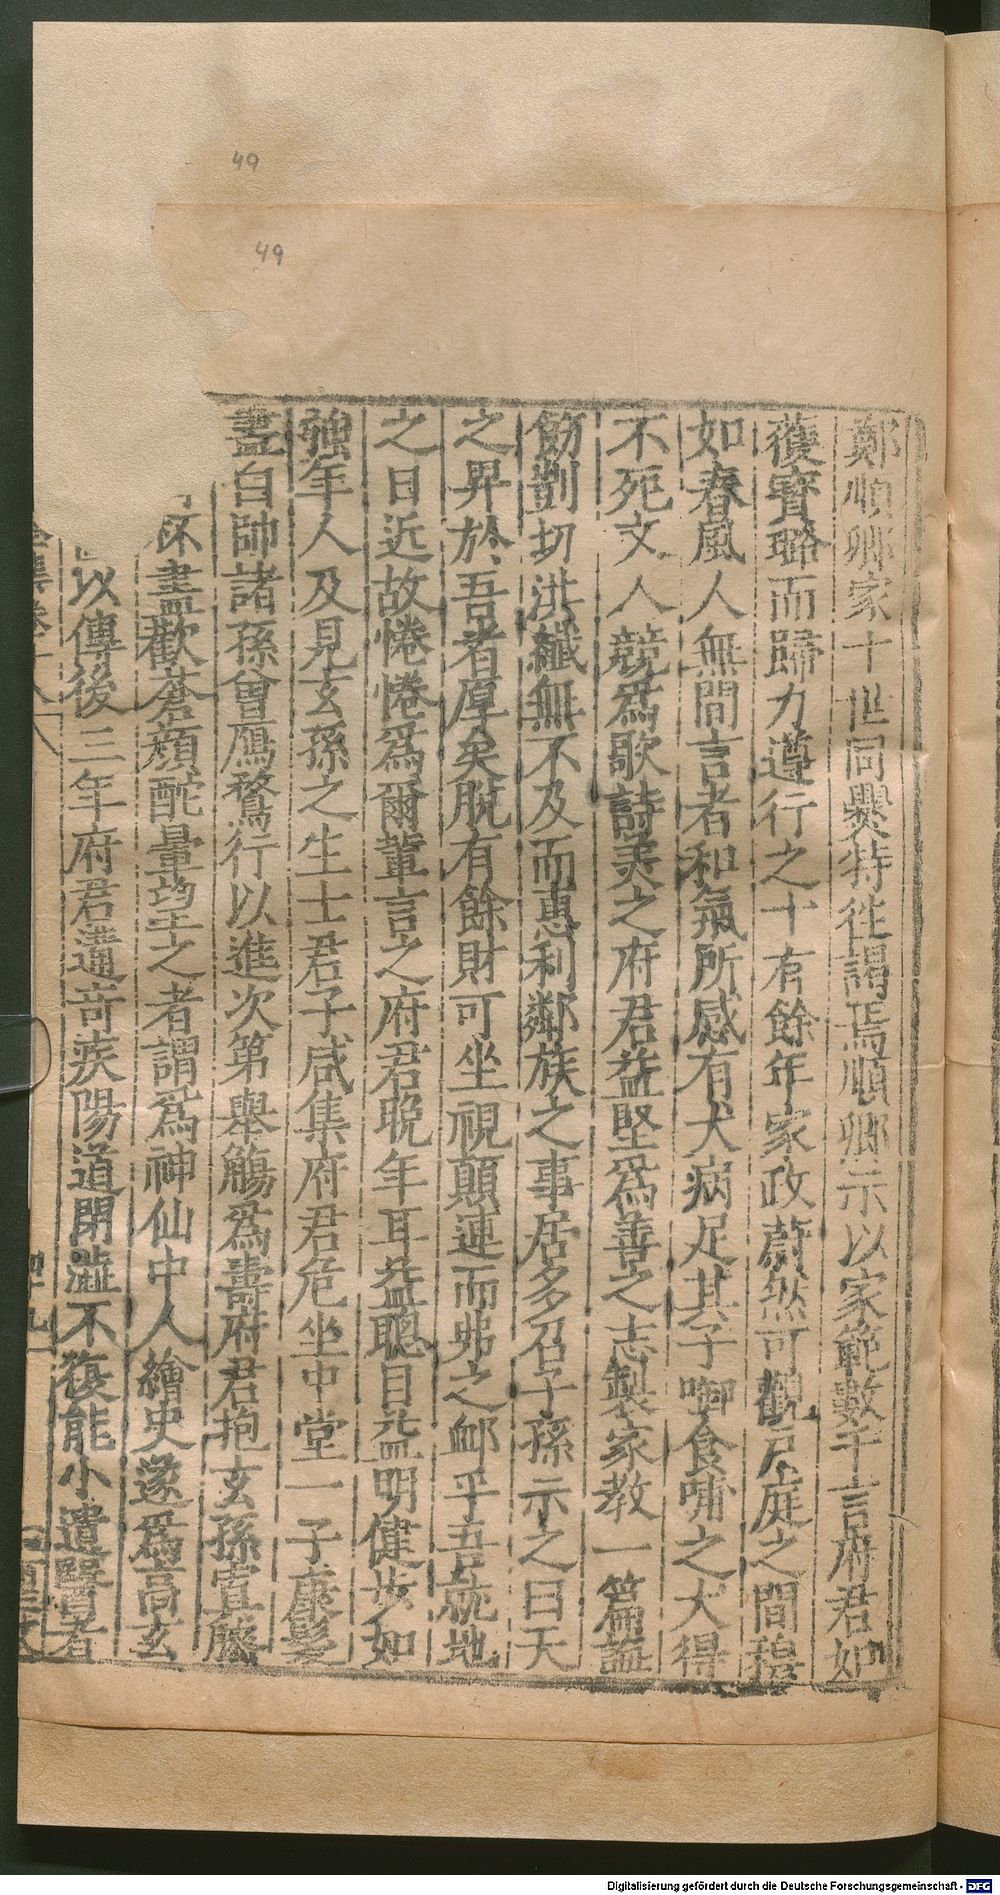 49
49
鄭順卿家十世同爨特徃謁焉順卿示以家範數千言府君如
獲寶璐而歸力遵行之十有餘年家政蔚然可觀戶庭之間穆
如春風人無間言者和氣所感有犬病足其子啣食哺之犬得
不死文人競爲歌詩美之府君益堅爲善之志製家教一篇誣
飭剴切洪纖無不及而惠利鄰族之事居多召子孫示之曰天
之昇於吾者厚矣脫有餘財可坐視顛連而弗之衈乎吾就地
之日近故惓惓爲爾輩言之府君晩年耳益聰目益明健步如
強年人及見玄孫之生士君子咸集府君危坐中堂一子龐髮
盡白帥諸孫曾鴈鶩行以進次第舉觴爲壽府君抱玄孫寘膝
怀盡歡蒼顏酡暈望之者謂爲神仙中人繪史遂爲高玄
以傳後三年府君遘奇疾陽道閉澁不復能小遺醫者
Digitalisierung gefördert durch die Deutsche Forschungsgemeinschaft - DFG